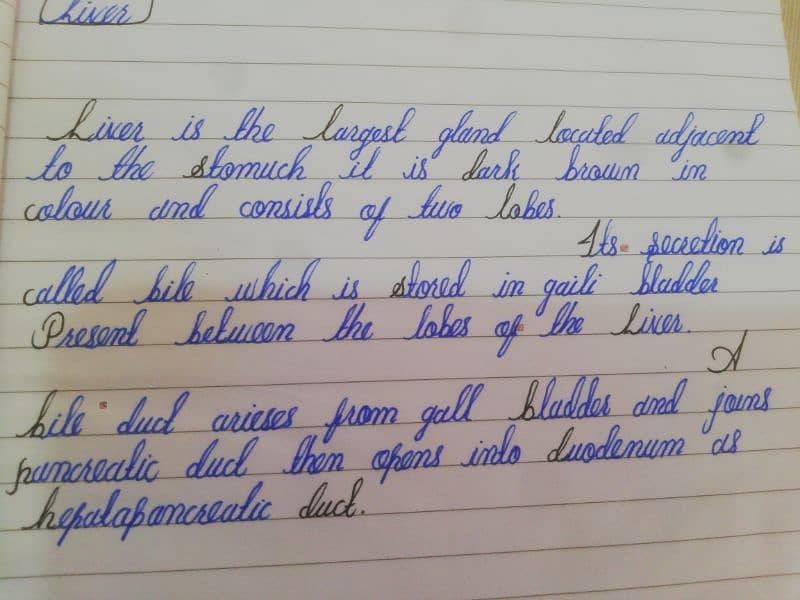 Liver
Liver is the largest gland located adjacent
to the stomuch it is dark brown in
colour and consists of two lobes.
Its secretion is
called bile which is stored in gaili bladder
Present between the lobes of the Liver.
A
bile duct arieses from gall bladder and joins
pancreatic duct then opens into duodenum as
hepatapancreatic duct.